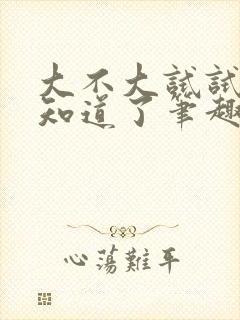 大不大試試
知道了筆趣
心蕩難平